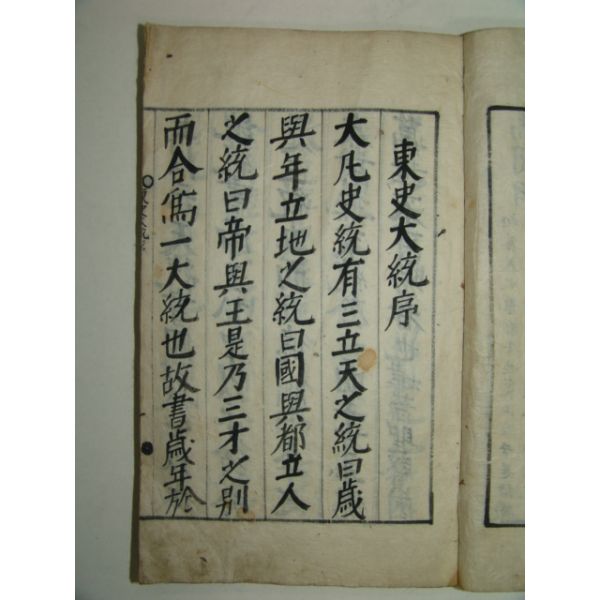 東史大統序
大凡史統有三立天之統曰歲
與年立地之統曰國與都立人
之統曰帝與王是乃三才之別
而合爲一大統也故書歲年於